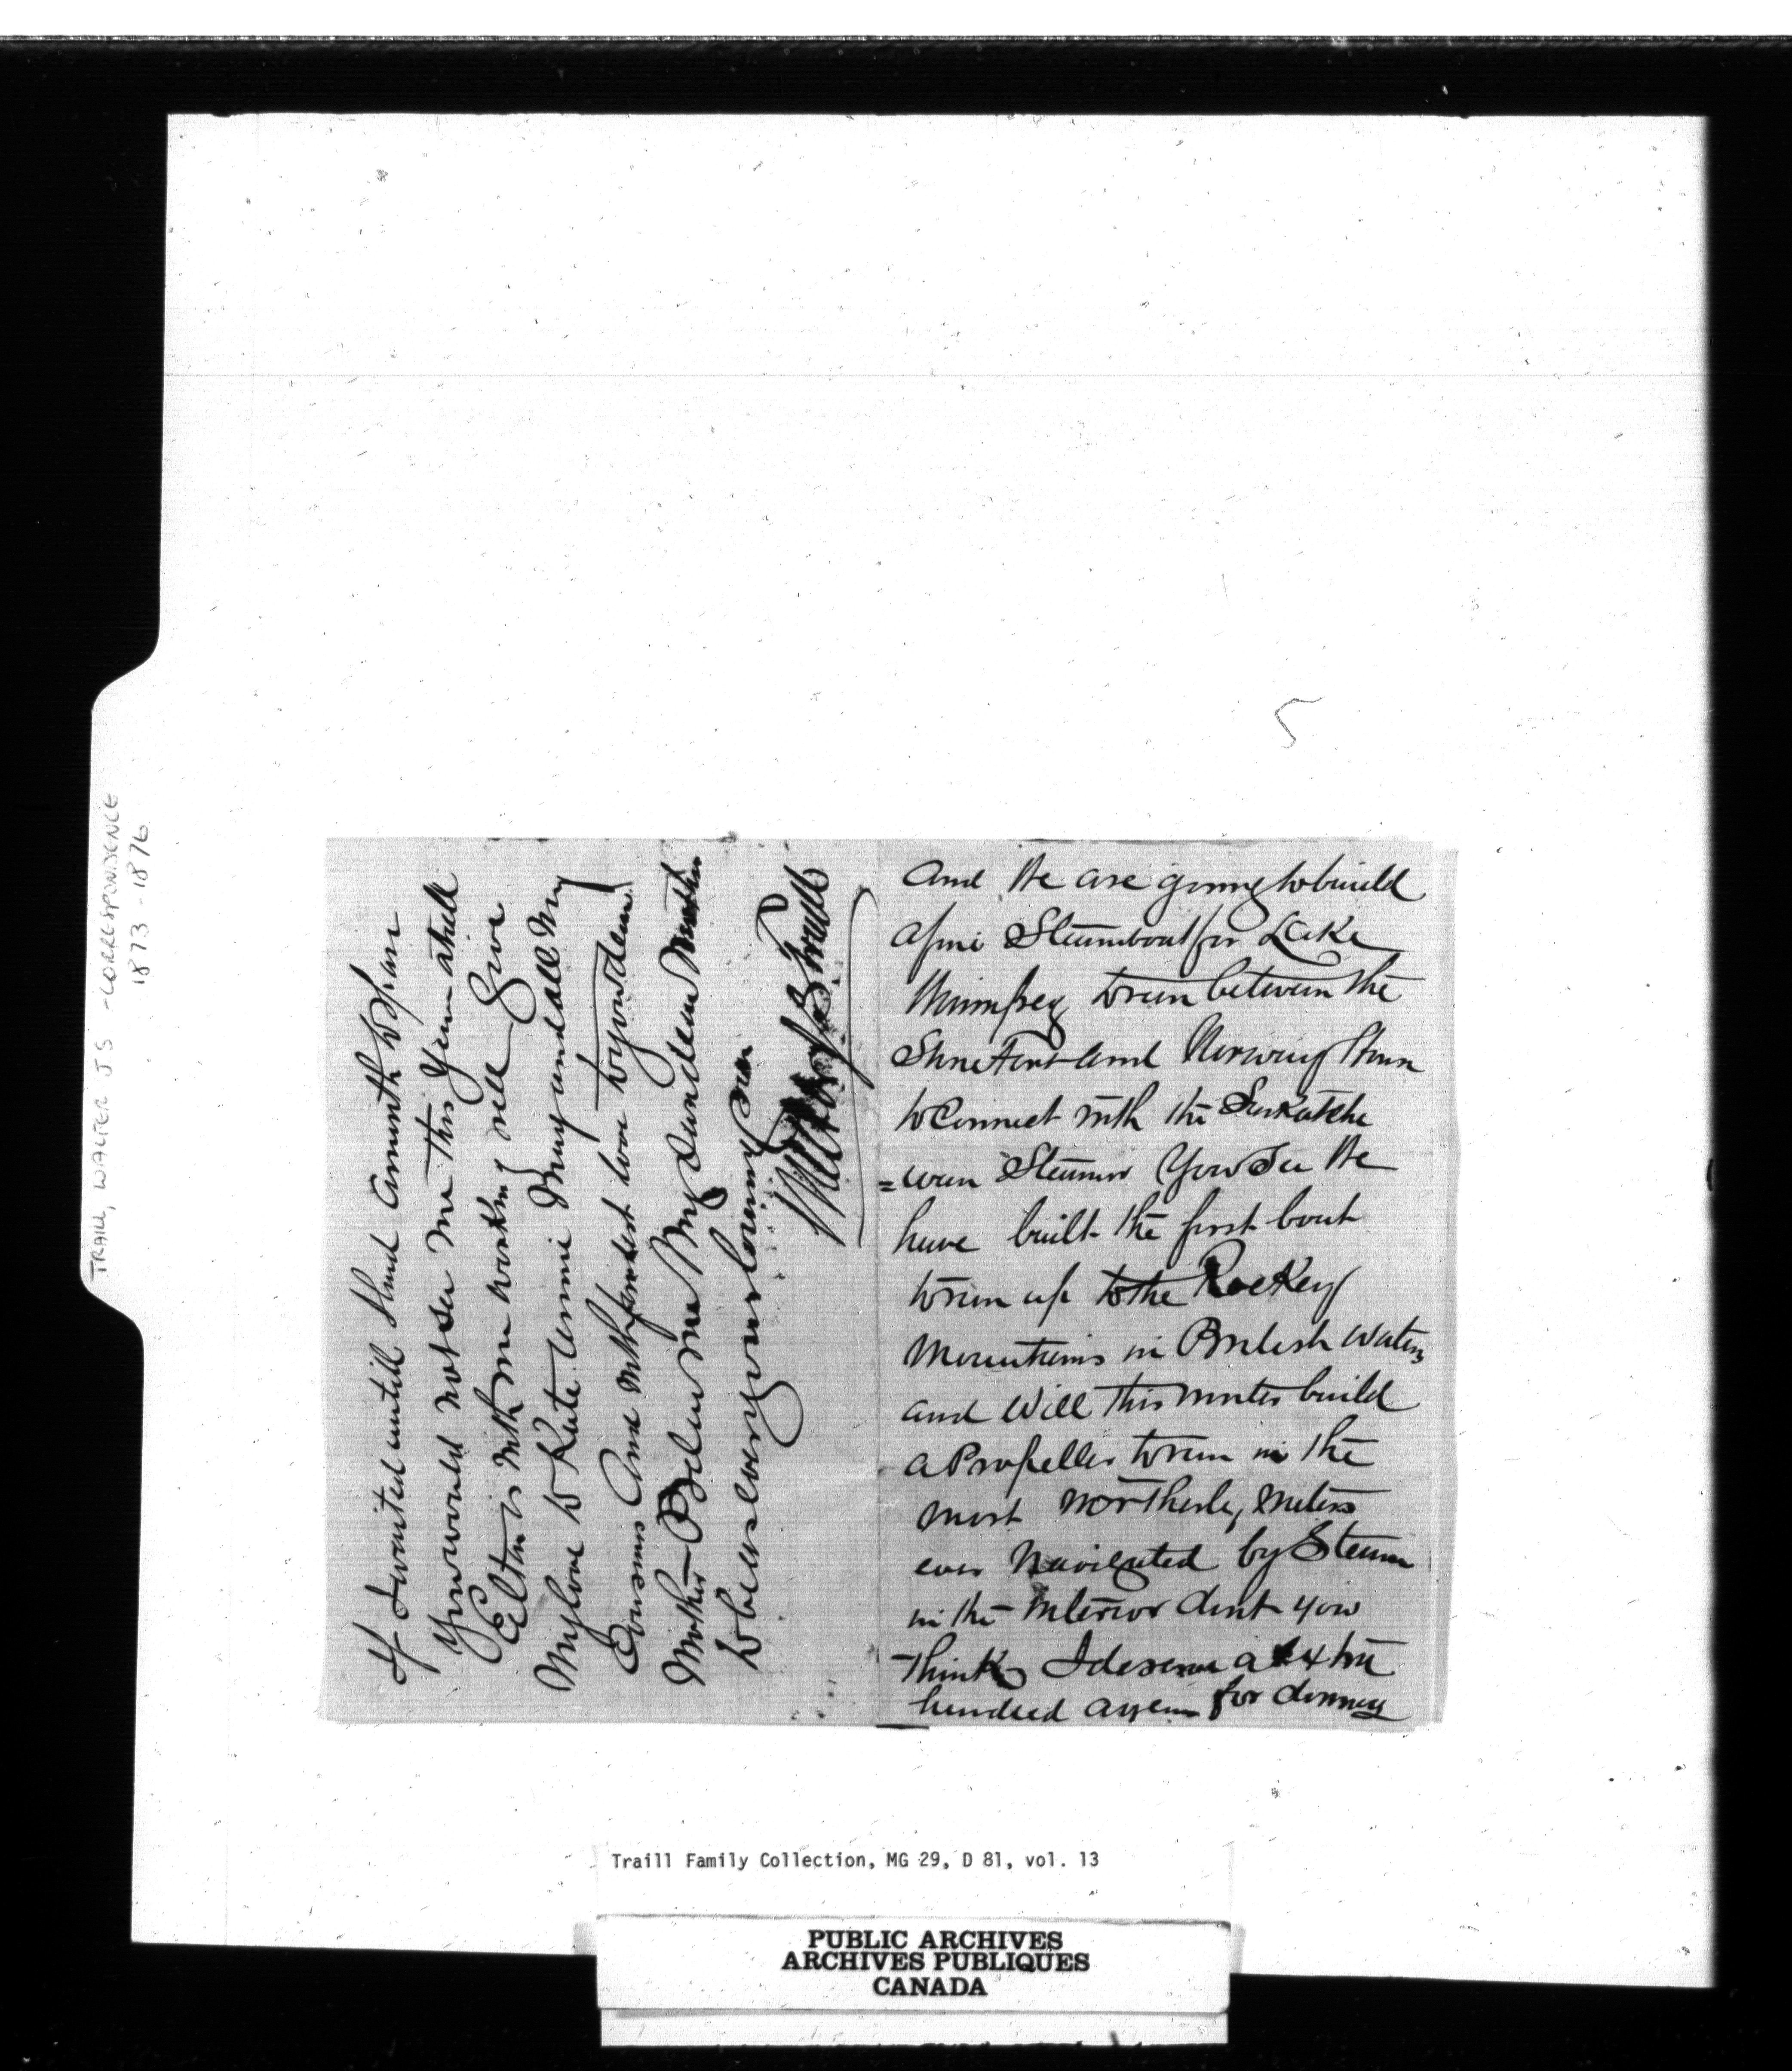 TRAILL, WALTER J S - CORRESPONDENCE
1873-1876
5
and We are going to build
a fine Steamboat for Lake
Winnipeg to run between the
Stone Fort and Norway House
to Connect with the Saskatche
=wan Steamer You See We
have built the first boat
to run up to the Rockey
Mountains in British Waters
and Will this winter build
a Propeller to run in the
most Northerly Waters
ever Navigated by Steam
in the interior dont you
Think I deserve a extra
hundred a year for
If I waited untill I had a month to spare
You would not See me this Year atall
Elton is with me working well Give
My love to Kate Annie Mary and all My
Cousins And with fondest love to you dear
Mother Believe me My dear dear Mother
to be as Ever your loving Son
Walter J S Traill
Traill Family Collection, MG 29, D 81, vol. 13
PUBLIC ARCHIVES
ARCHIVES PUBLIQUES
CANADA